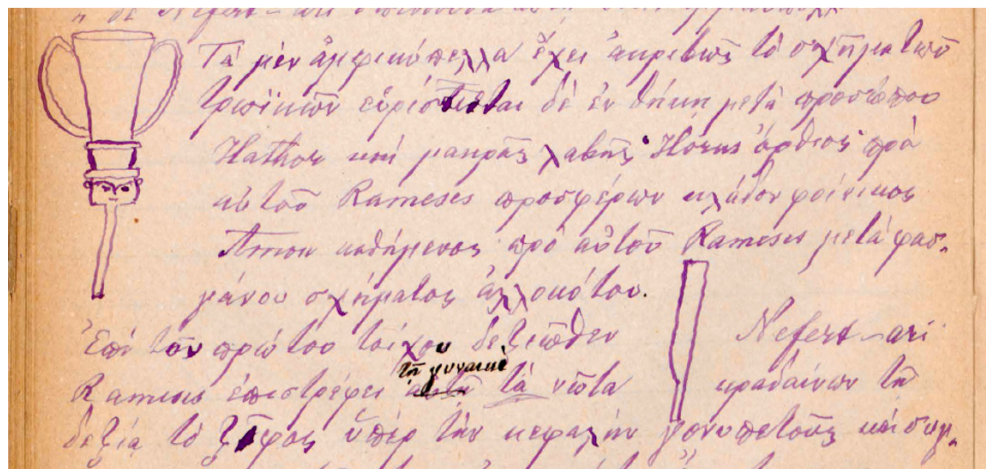 δὲ Nefert-ari
Τὰ μὲν ἀμφικύπελλα ἔχει ἀκριβῶς τὸ σχῆμα τῶν
τρωϊκῶν εὑρίσκεται δὲ ἐν θήκῃ μετὰ προσώπου
Hathor καὶ μακρᾶς λαβῆς Horus ὄρθιος πρὸ
αὐτοῦ Rameses προσφέρων κλάδον φοίνικος
Amon καθήμενος πρὸ αὐτοῦ Rameses μετὰ φασ-
γάνου σχήματος ἀλλοκότου.
Ἐπὶ τοῦ πρώτου τοίχου δεξιῶθεν Nefert-ari
τῇ γυναικὶ
Rameses ἐπιστρέφει τὰ νῶτα κραδαίνων τῇ
δεξιᾷ τὸ ξίφος ὑπὲρ τὴν κεφαλὴν γονυπετοῦς καὶ συμ-